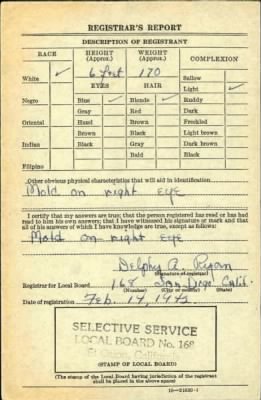 REGISTRAR'S REPORT
DESCRIPTION OF REGISTRANT
RACE
HEIGHT (Approx.)
WEIGHT (Approx.)
COMPLEXION
White ✓
6 feet
170
Sallow
EYES
HAIR
Light ✓
Negro
Blue ✓
Blonde ✓
Ruddy
Gray
Red
Dark
Oriental
Hazel
Brown
Freckled
Brown
Black
Light brown
Indian
Black
Gray
Dark brown
Bald
Black
Filipino
Other obvious physical characteristics that will aid in identification
Mold on right eye
I certify that my answers are true; that the person registered has read or has had
read to him his own answers; that I have witnessed his signature or mark and that
all of his answers of which I have knowledge are true, except as follows:
Mold on right eye
Delphy A. Ryan
(Signature of registrar)
Registrar for Local Board 168 San Diego Calif.
(Number) (City or county) (State)
Date of registration Feb. 14, 1942
SELECTIVE SERVICE
LOCAL BOARD No. 168
Calif
(STAMP OF LOCAL BOARD)
(The stamp of the Local Board having jurisdiction of the registrant
shall be placed in the above space)
16—21630-1